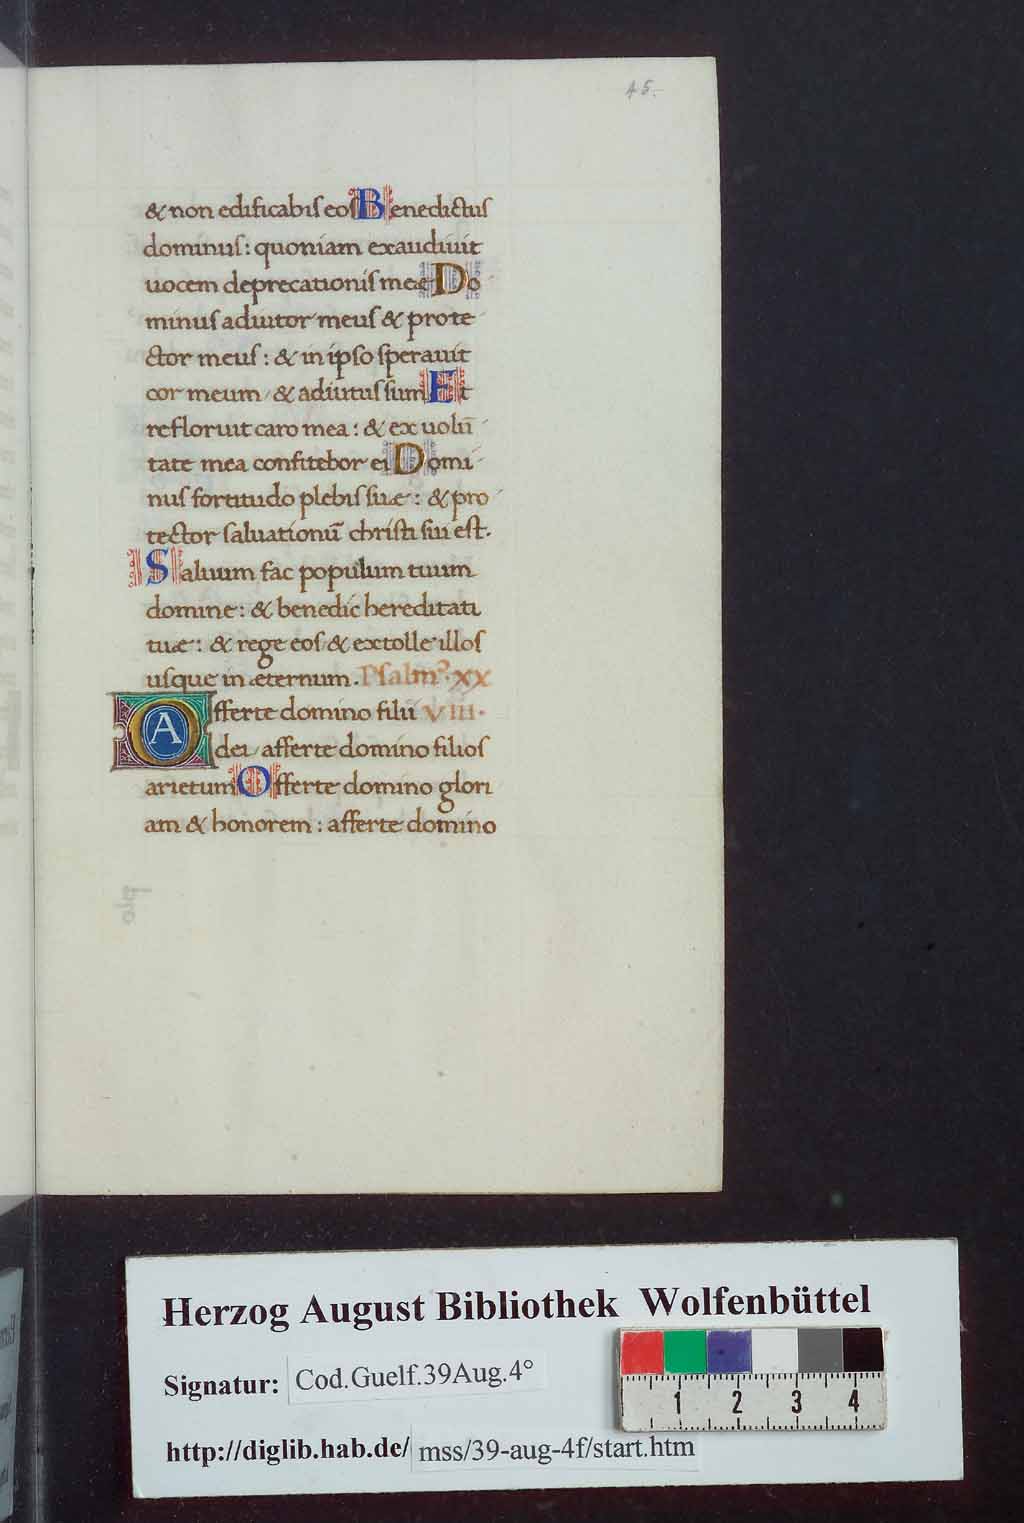 45.
& non edificabis eos Benedictus
dominus: quoniam exaudiuit
uocem deprecationis meæ Do
minus adiutor meus & prote
ctor meus: & in ipso sperauit
cor meum / & adiutus sum Et
refloruit caro mea: & ex uolū
tate mea confitebor ei Domi
nus fortitudo plebis suæ: & pro
tector saluationū christi sui est.
Saluum fac populum tuum
domine: & benedic hereditati
tuæ: & rege eos & extolle illos
usque in æternum. Psalmꝰ. XX
Afferte domino filii VIII.
dei / afferte domino filios
arietum Offerte domino glori
am & honorem: afferte domino
Herzog August Bibliothek Wolfenbüttel
Signatur: Cod.Guelf.39Aug.4°
1 2 3 4
http://diglib.hab.de/ mss/39-aug-4f/start.htm